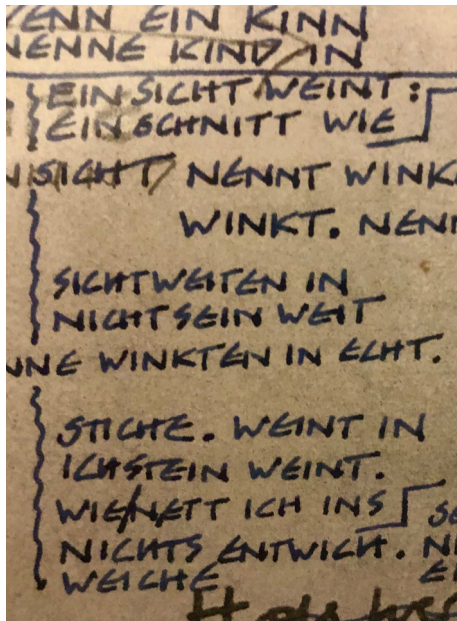 WENN EIN KINN
NENNE KIND IN
EINSICHT WEINT:
EIN SCHNITT WIE
SICHT NENNT
WINKT.
SICHTWEITEN IN
NICHTSEIN WEIT
WINKTEN IN ECHT.
STICHE. WEINT IN
ICHSTEIN WEINT.
WIE NETT ICH INS
NICHTS ENTWICH.
WEICHE